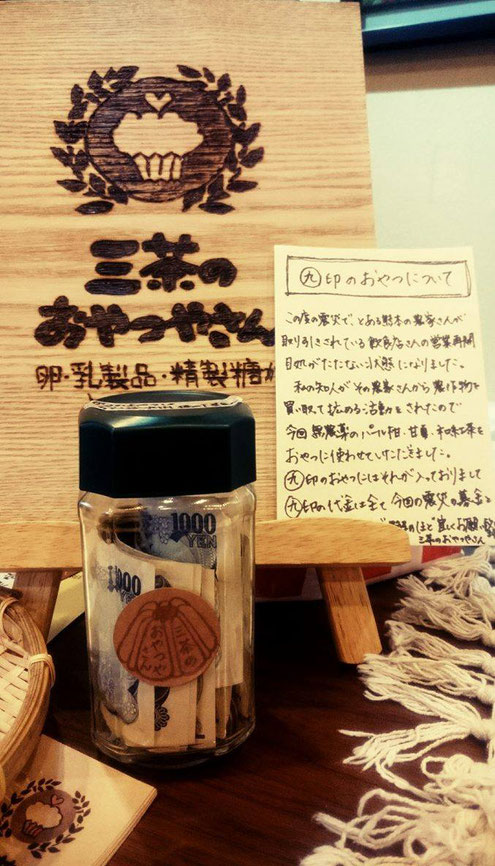 三茶の
おやつやさん
卵・乳製品・精製糖
㊈印のおやつについて
この度の震災で、とある熊本の農家さんが
取り引きされている飲食店さんの営業再開
目処がたたない状態になりました。
私の知人がその農家さんから農作物を
買い取って広める活動をされたので
今回無農薬のパール柑・甘夏・和紅茶を
おやつに使わせていただきました。
㊈印のおやつにはそれが入っておりまして
㊈印の代金は全て今回の震災の募金
のほど宜しくお願い
三茶のおやつやさん
1000
YEN
1000
三茶の
おやつや
さん